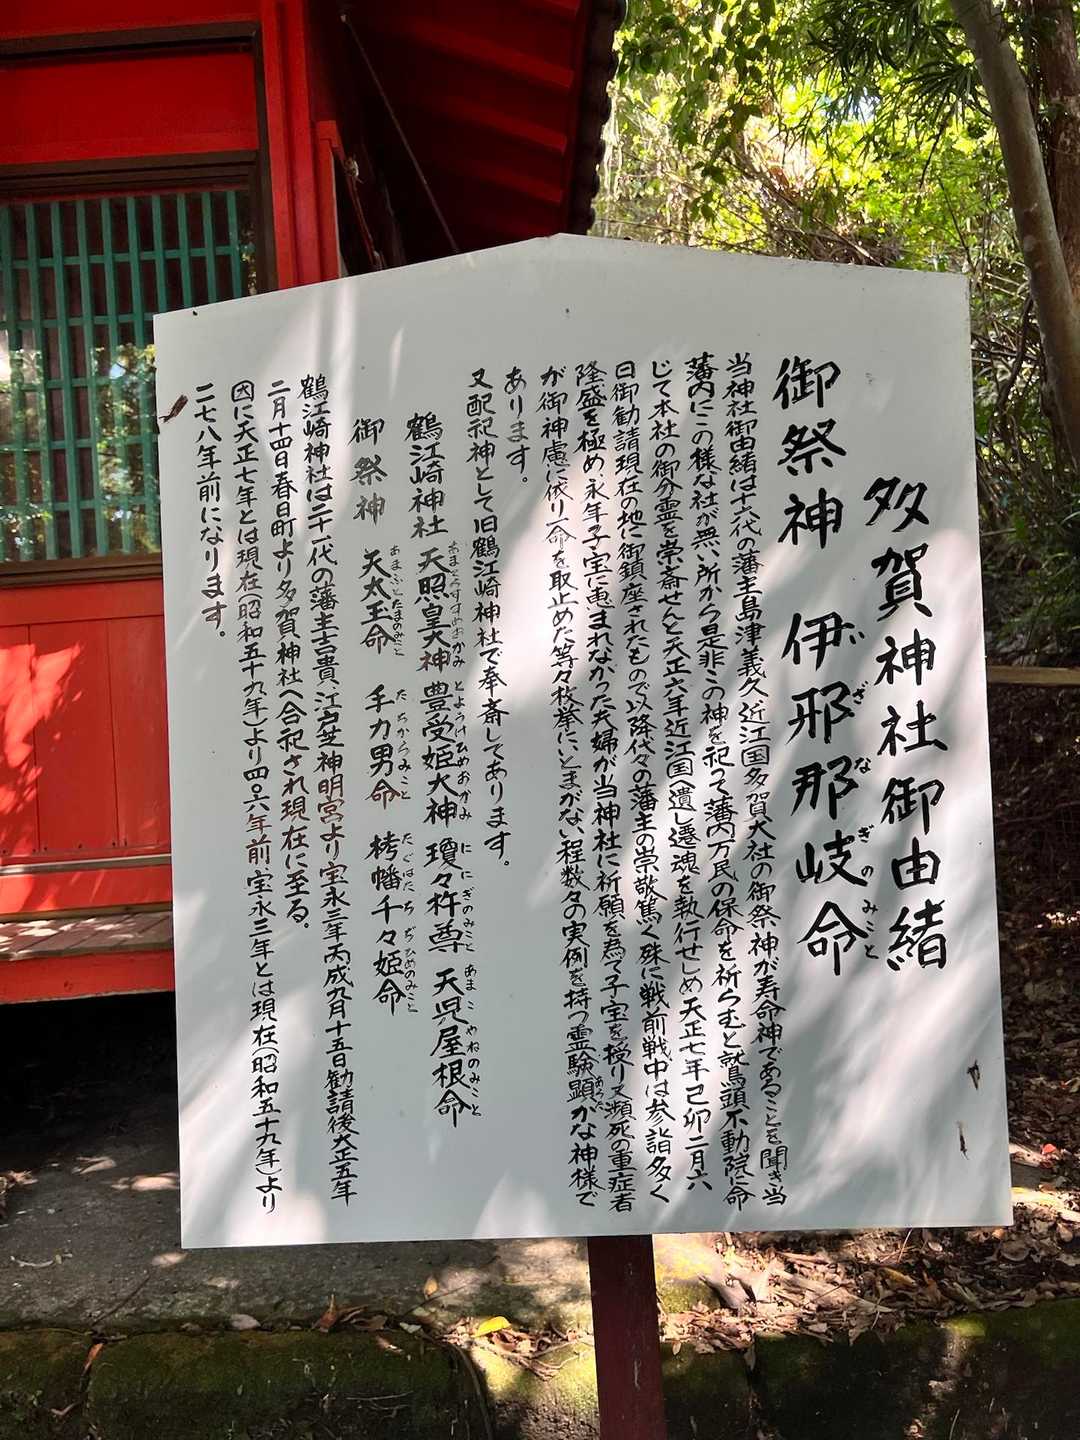 多賀神社御由緒
御祭神　伊邪那岐命
いざなぎのみこと
当神社御由緒は十六代の藩主島津義久、近江国多賀大社の御祭神が寿命神であることを聞き当
藩内にこの様な社が無い所から是非この神を祀って藩内万民の保命を祈らむと鷲頭不動院に命
じて本社の御分霊を崇斎せんと天正六年近江国へ遺し遷魂を執行せしめ天正七年己卯二月六
日御勧請現在の地に御鎮座されたもので以降代々の藩主の崇敬篤く殊に戦前戦中は参詣多く
隆盛を極め、永年子宝に恵まれなかった夫婦が当神社に祈願を為て子宝を授り又瀕死の重症者
が御神慮に依り一命を取止めた等々枚挙にいとまがない程数々の実例を持つ霊験顕かな神様で
あらた
あります。
又配祀神として旧鶴江崎神社で奉斎してあります。
鶴江崎神社　天照皇大神　豊受姫大神　瓊々杵尊　天児屋根命
あまてらすすめおかみ　とようけひめおかみ　ににぎのみこと　あまこやねのみこと
御祭神　天太玉命　手力男命　栲幡千々姫命
あまふとたまのみこと　たちからみこと　たぐはたちぢひめのみこと
鶴江崎神社は二十一代の藩主吉貴、江戸芝神明宮より宝永三年丙戌九月十五日勧請後大正五年
二月十四日春日町より多賀神社へ合祀され現在に至る。
因に天正七年とは現在(昭和五十九年)より四〇六年前宝永三年とは現在(昭和五十九年)より
二七八年前になります。